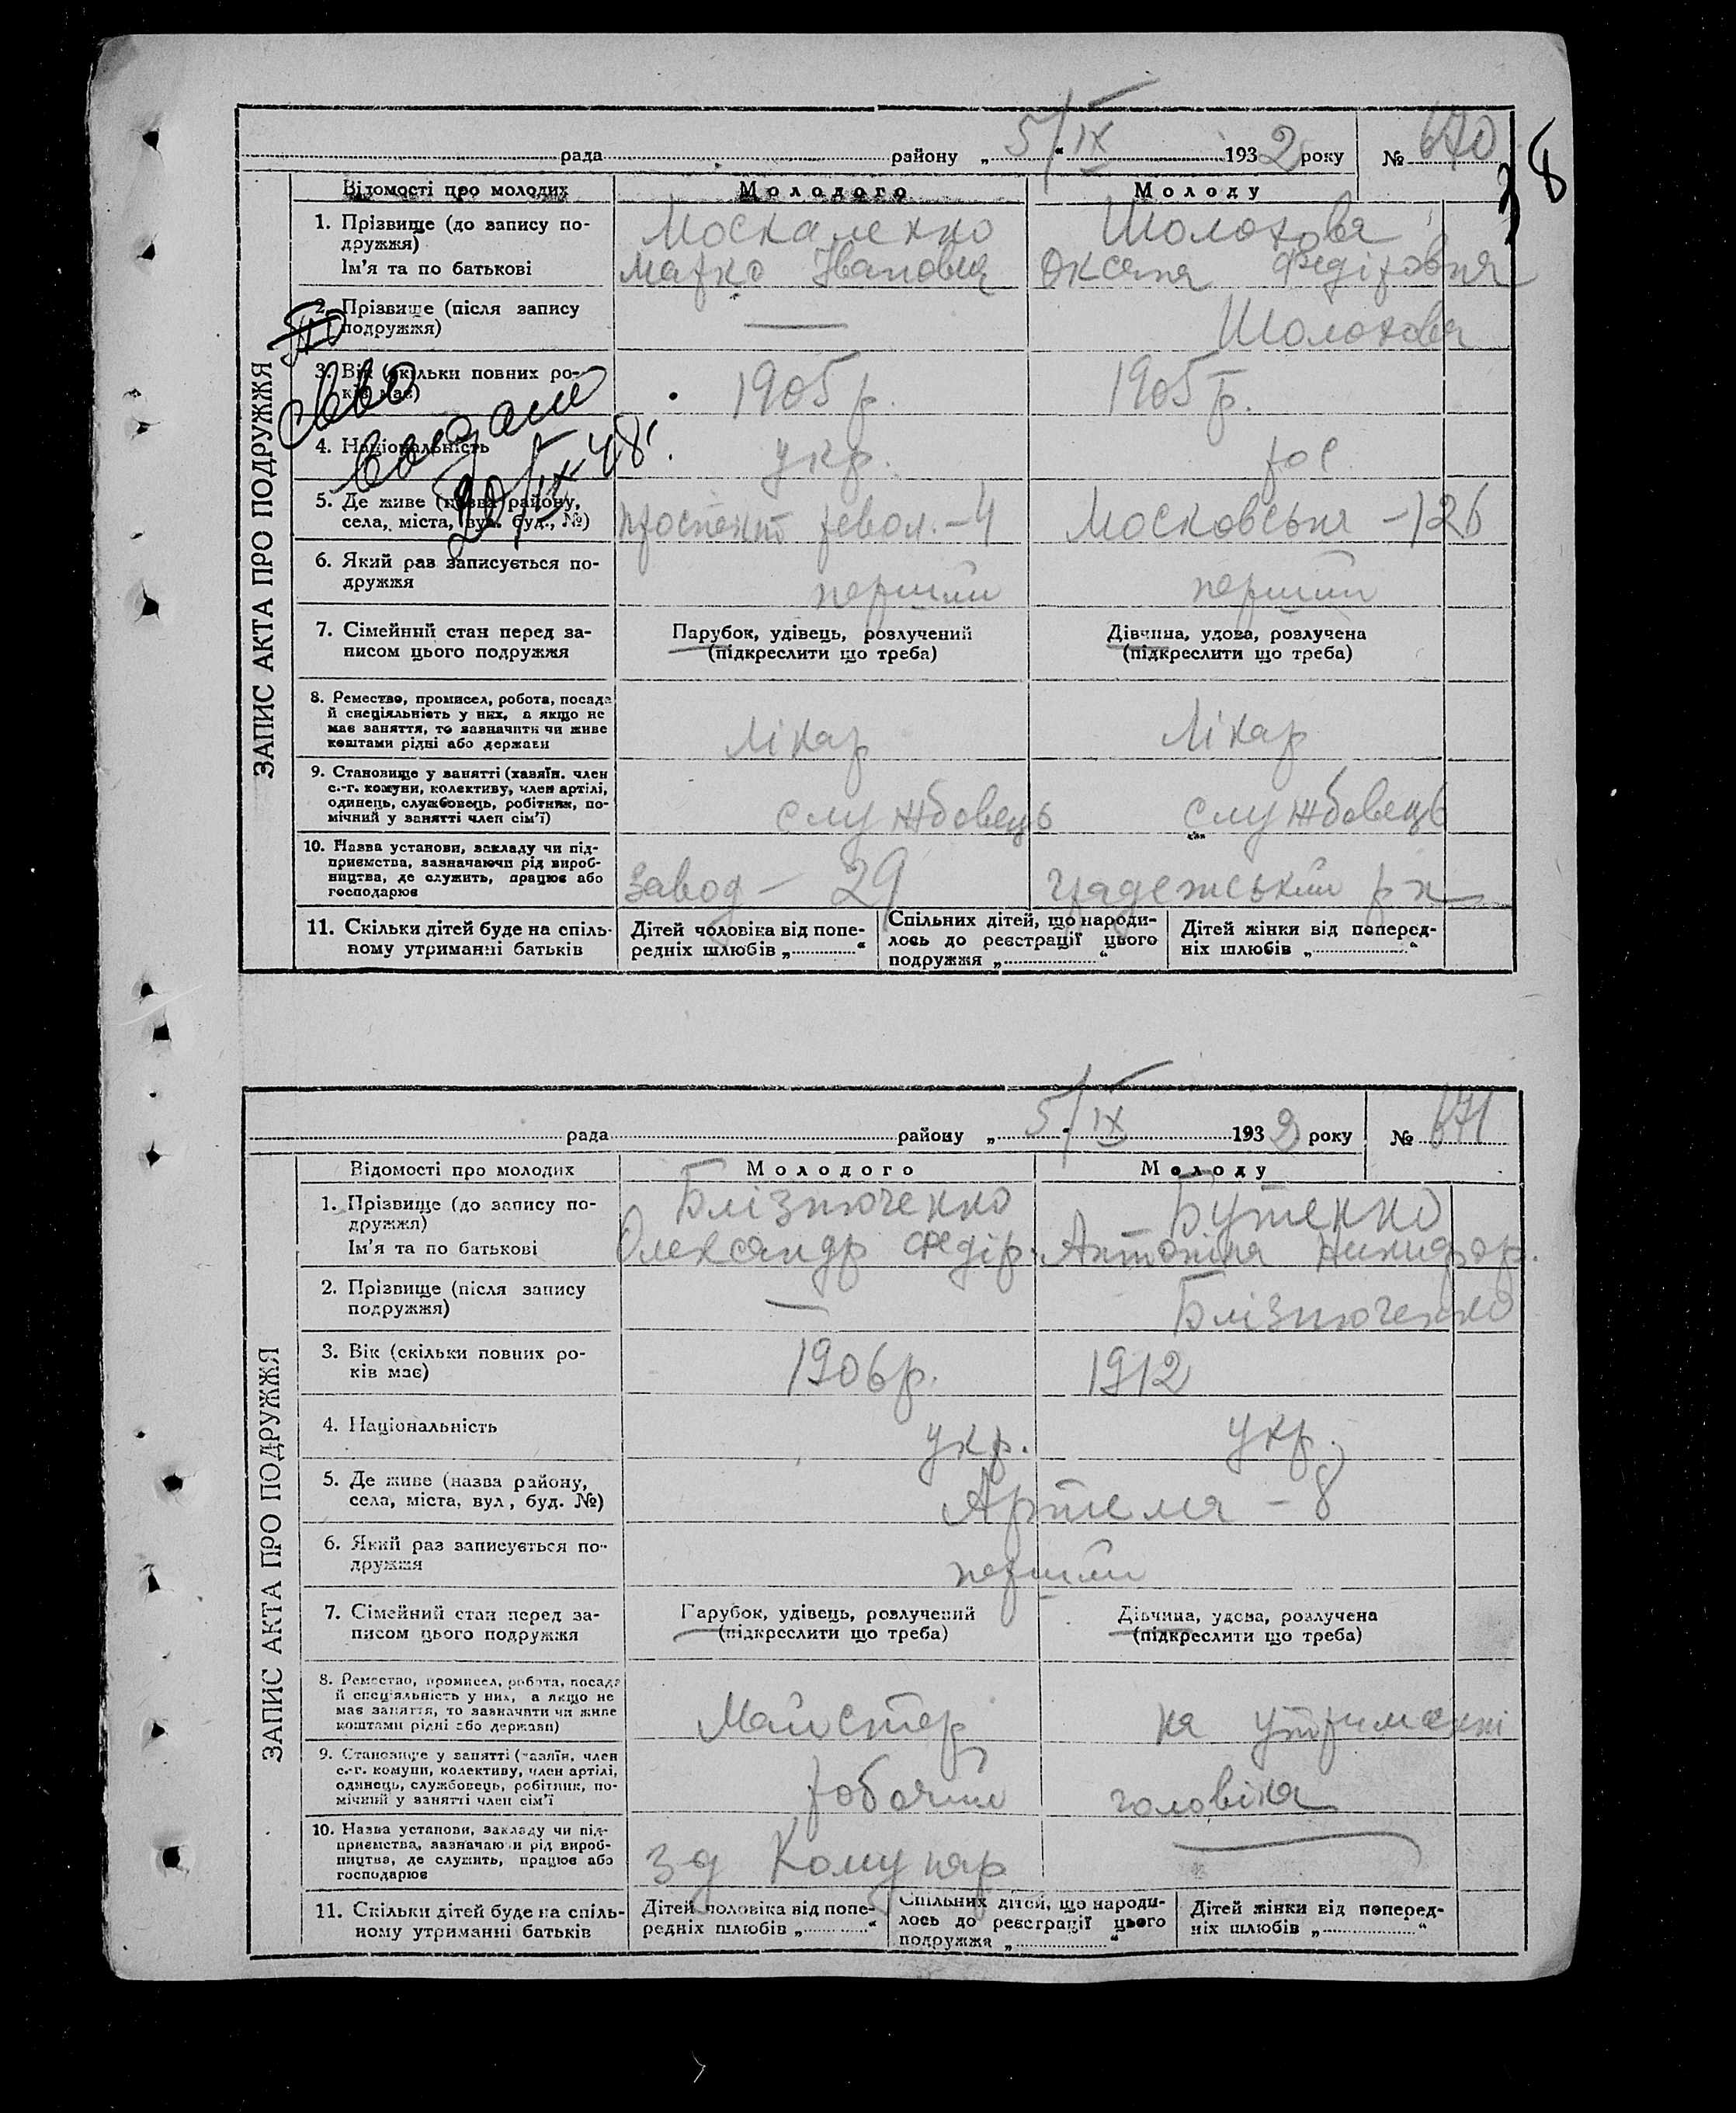 38
рада району „ 5/IX “ 1932 року № 670
ЗАПИС АКТА ПРО ПОДРУЖЖЯ
Відомості про молодих Молодого Молоду
1. Прізвище (до запису по-
дружжя)
Ім'я та по батькові
Москаленко
Марко Іванович
Шолохова
Оксана Федіровна
2. Прізвище (після запису
подружжя)
—
Шолохова
3. Вік (скільки повних ро-
ків має)
1905 р.
1905 р.
4. Національність
укр.
рос
Св-во
выдано
20/IX 48г.
5. Де живе (назва району,
села, міста, вул. буд., №)
проспект револ. – 4
Московська – 126
6. Який раз записується по-
дружжя
перший
перший
7. Сімейний стан перед за-
писом цього подружжя
Парубок, удівець, розлучений
(підкреслити що треба)
Дівчина, удова, розлучена
(підкреслити що треба)
8. Ремество, промисел, робота, посада
й спеціяльність у них, а якщо не
має заняття, то зазначити чи живе
коштами рідні або держави
Лікар
Лікар
9. Становище у занятті (хазяїн. член
с.-г. комуни, колективу, член артілі,
одинець, службовець, робітник, по-
мічний у занятті член сім'ї)
службовець
службовець
10. Назва установи, закладу чи під-
приємства, зазначаючи рід вироб-
ництва, де служить, працює або
господарює
завод – 29
11. Скільки дітей буде на спіль-
ному утриманні батьків
Дітей чоловіка від попе-
редніх шлюбів „ “
Спільних дітей, що народи-
лось до реєстрації цього
подружжя „ “
Дітей жінки від поперед-
ніх шлюбів „ “
рада району „ 5/IX 1932 року № 671
ЗАПИС АКТА ПРО ПОДРУЖЖЯ
Відомості про молодих Молодого Молоду
1. Прізвище (до запису по-
дружжя)
Ім'я та по батькові
Блізнюченко
Олександр Федір.
Бутенко
Антоніна Никифор.
2. Прізвище (після запису
подружжя)
—
Блізнюченко
3. Вік (скільки повних ро-
ків має)
1906 р.
1912
4. Національність
укр.
укр.
5. Де живе (назва району,
села, міста, вул, буд. №)
Артема – 8
6. Який раз записується по-
дружжя
перший
7. Сімейний стан перед за-
писом цього подружжя
Парубок, удівець, розлучений
(підкреслити що треба)
Дівчина, удова, розлучена
(підкреслити що треба)
8. Ремество, промисел, робота, посада
й спеціяльність у них, а якщо не
має заняття, то зазначити чи живе
коштами рідні або держави)
Майстер
на утриманні
9. Становище у занятті (хазяїн, член
с.-г. комуни, колективу, член артілі,
одинець, службовець, робітник, по-
мічний у занятті член сім'ї
робочий
чоловіка
10. Назва установи, закладу чи під-
приємства, зазначаючи рід вироб-
ництва, де служить, працює або
господарює
з-д Комунар
—
11. Скільки дітей буде на спіль-
ному утриманні батьків
Дітей чоловіка від попе-
редніх шлюбів „ “
Спільних дітей, що народи-
лось до реєстрації цього
подружжя „ “
Дітей жінки від поперед-
ніх шлюбів „ “